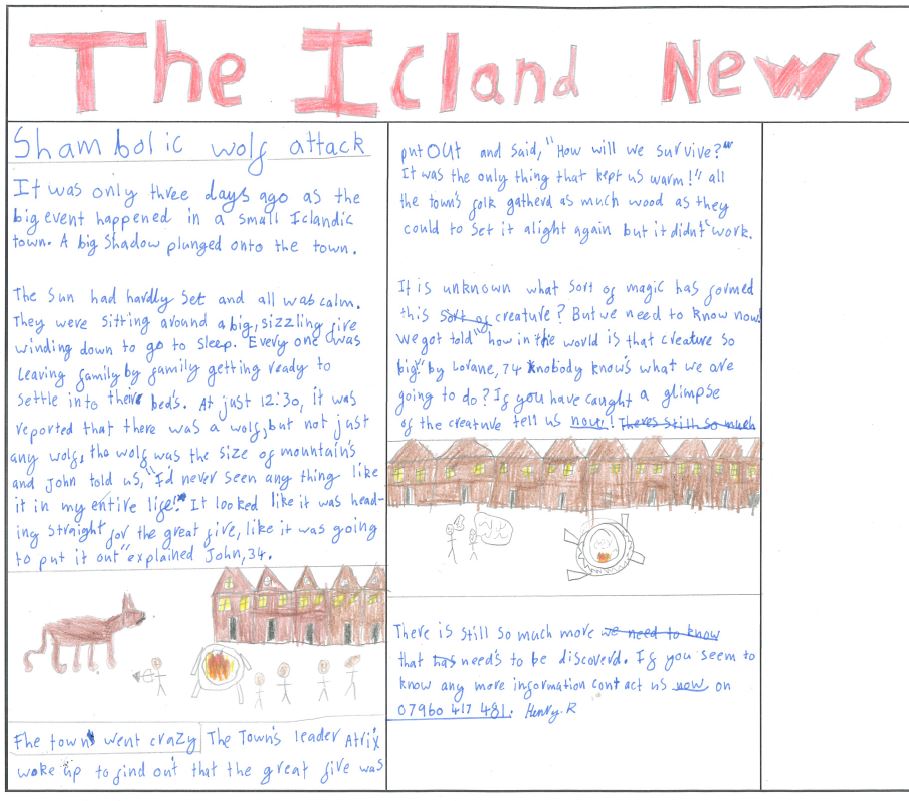 The Icland News
Shambolic wolf attack
It was only three days ago as the
big event happened in a small Iclandic
town. A big Shadow plunged onto the town.
The Sun had hardly set and all was calm.
They were sitting around a big, sizzling fire
winding down to go to sleep. Every one was
leaving family by family getting ready to
settle into their bed's. At just 12:30, it was
reported that there was a wolf, but not just
any wolf, the wolf was the size of mountain's
and John told us, "I'd never seen any thing like
it in my entire life!" It looked like it was head-
ing straight for the great fire, like it was going
to put it out" explained John, 34.
The town went crazy The Town's leader Atrix
woke up to find out that the great fire was
put OUt and said, "How will we survive?"
It was the only thing that kept us warm!" all
the town's folk gatherd as much wood as they
could to set it alight again but it didnt work.
It is unknown what sort of magic has formed
this sort of creature? But we need to know now!
we got told "how in the world is that creature so
big" by Lorane, 74 knobody know's what we are
going to do? If you have caught a glimpse
of the creature tell us now! Theres still so much
There is still so much more we need to know
that has need's to be discoverd. If you seem to
know any more information contact us now on
07960 417 481. Henry.R